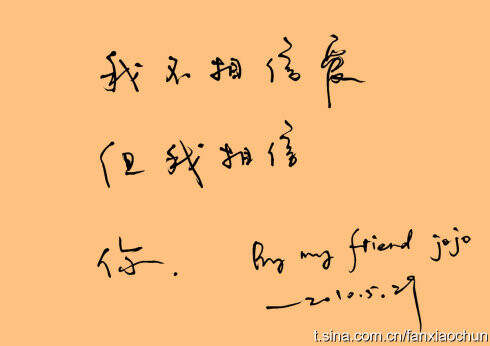 我不相信爱
但我相信
你.
By my friend jojo
—2010.5.29
t.sina.com.cn/fanxiaochun